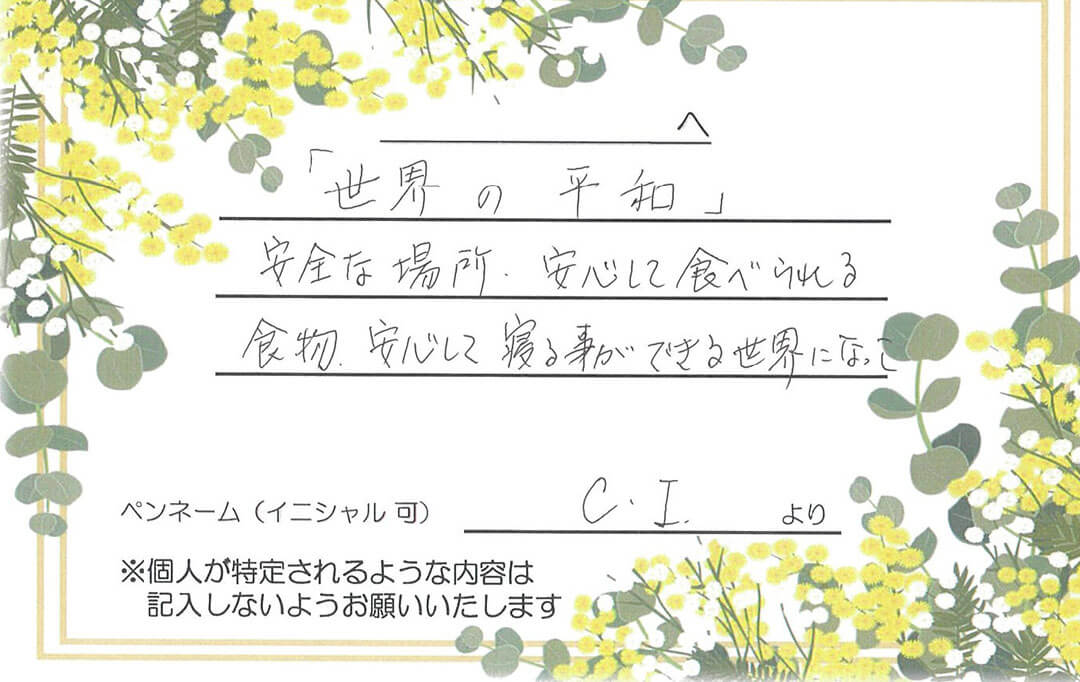 へ
「世界の平和」
安全な場所、安心して食べられる
食物、安心して寝る事ができる世界になって
ペンネーム（イニシャル可） C.I. より
※個人が特定されるような内容は
記入しないようお願いいたします